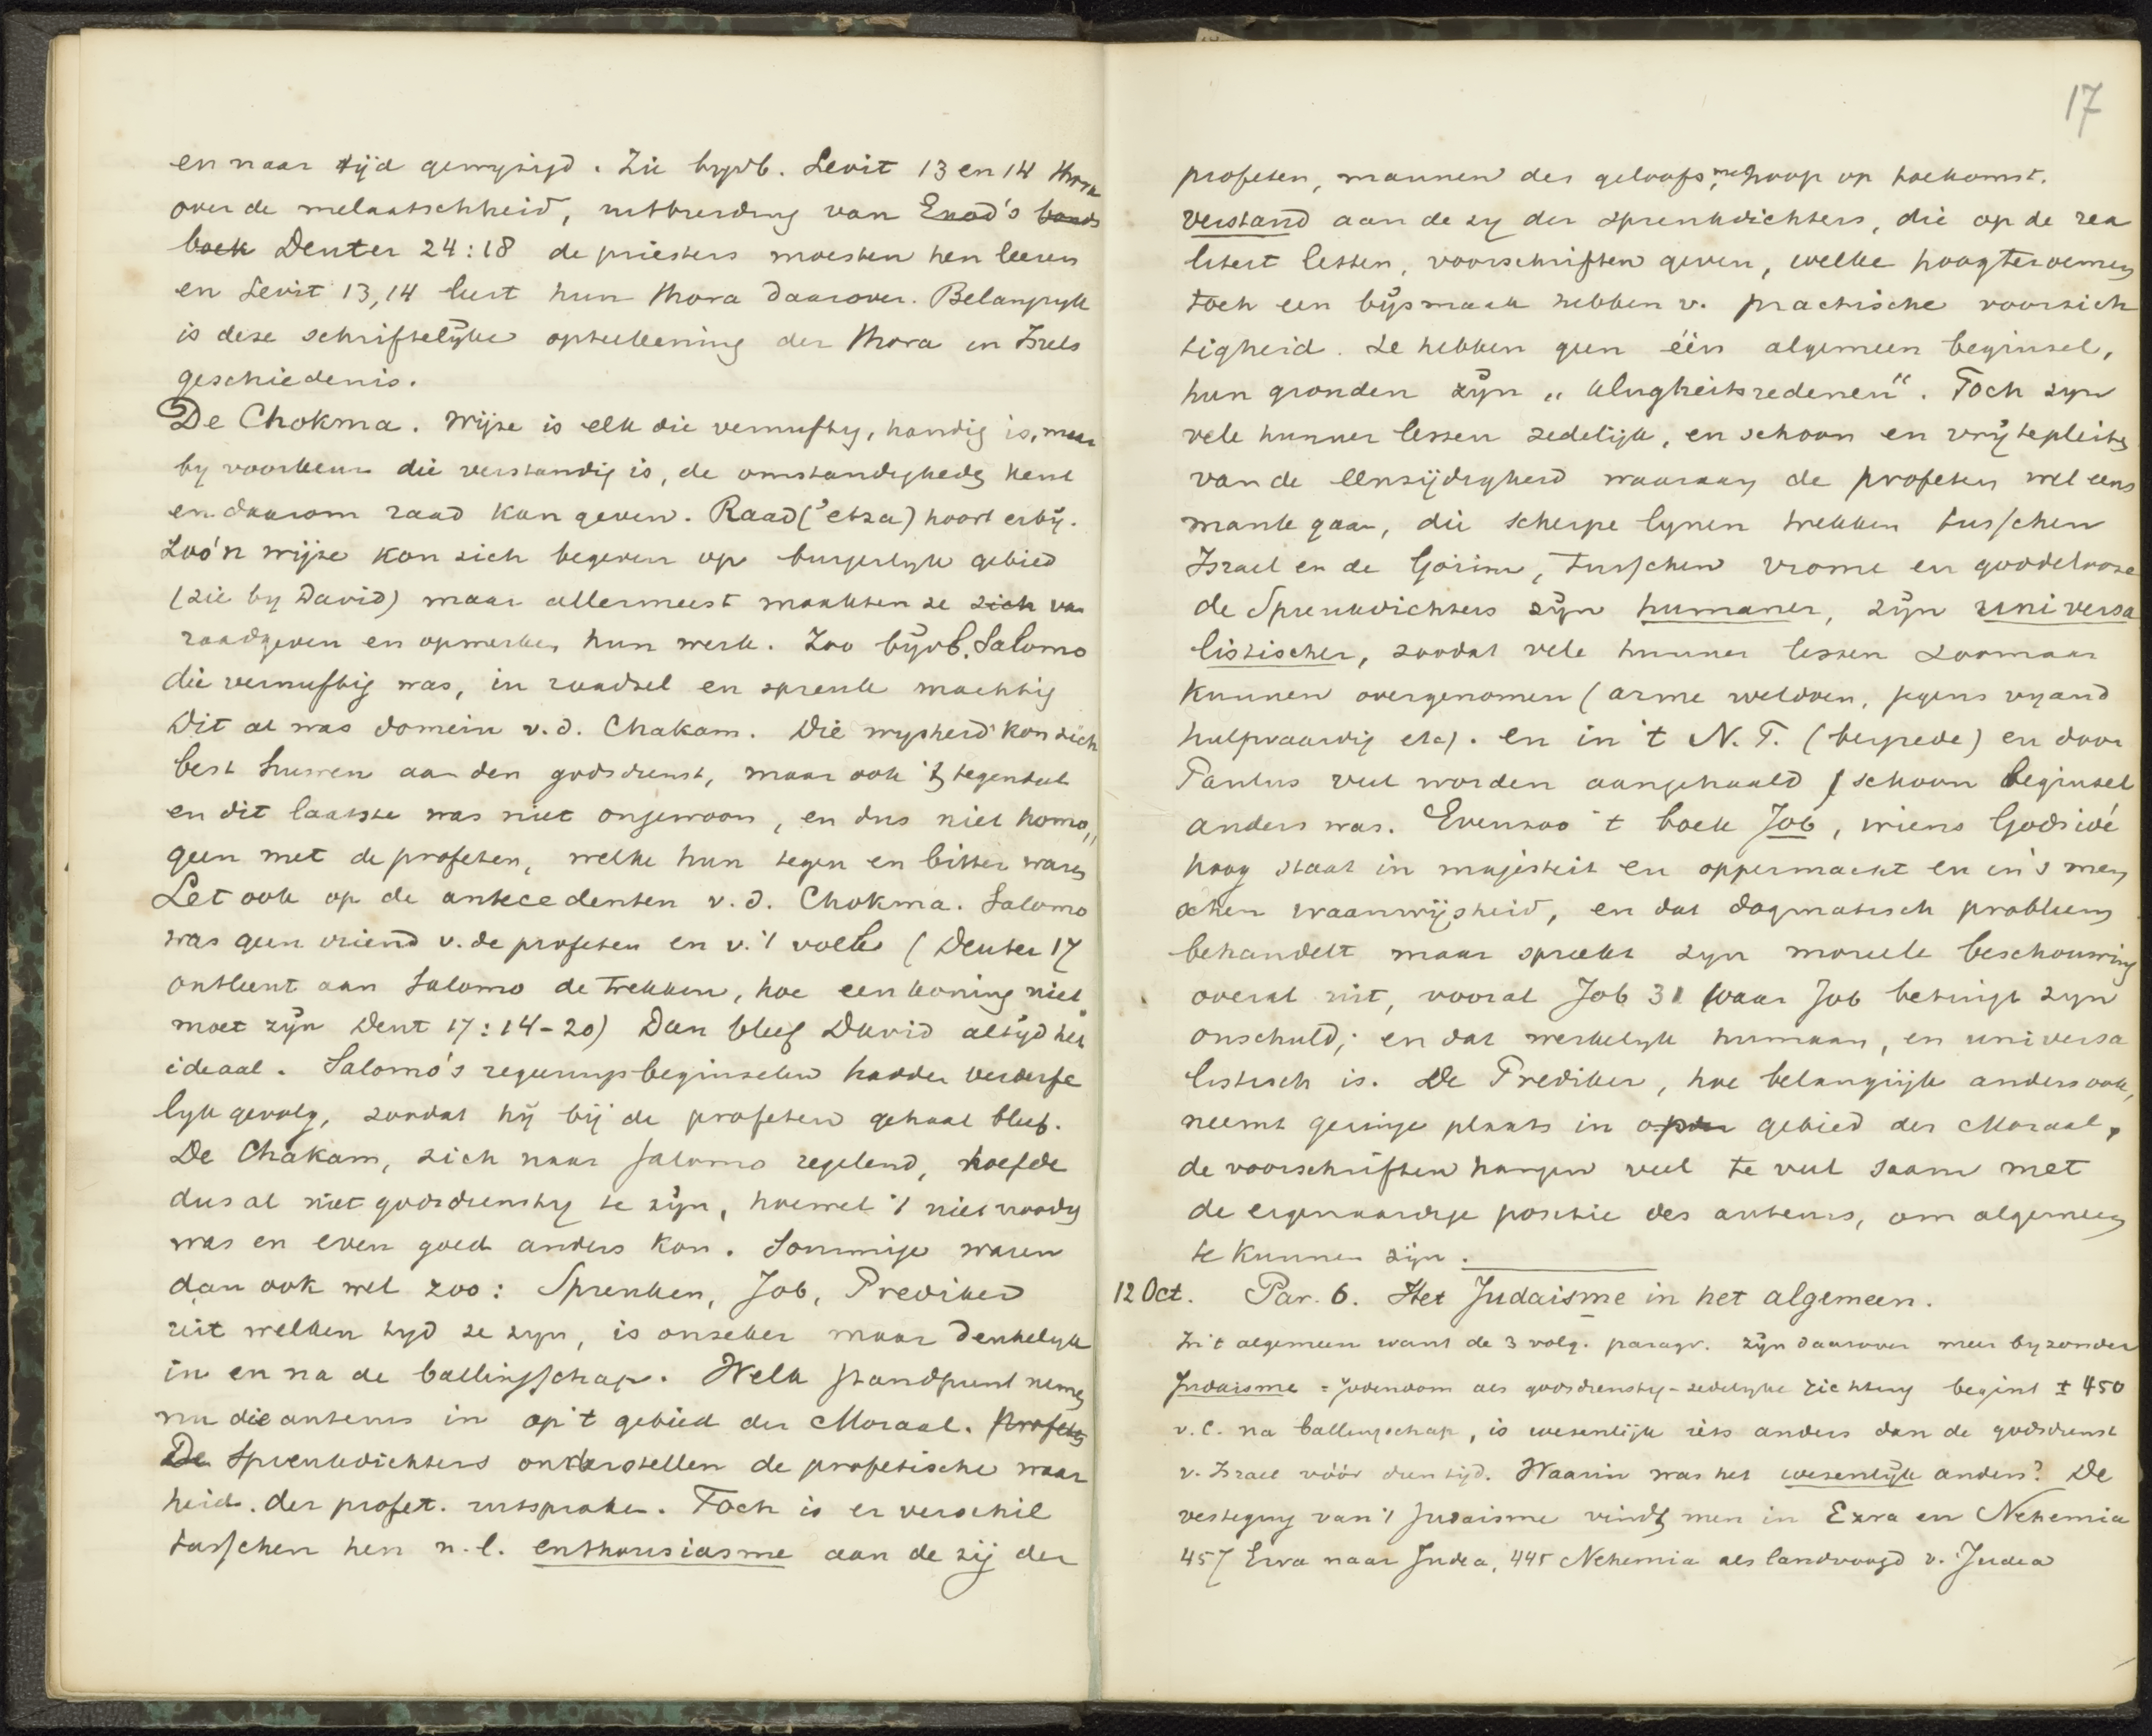 en naar tijd gewyzigd. Zie byvb. Levit 13 en 14 thora
over de melaatschheid, uitbreiding van Exod's bonds
boek Deuter 24:18 de priesters moesten hen leeren
en Levit 13,14 leert hun thora daarover. Belangryk
is deze schriftelijke opteekening der thora in Isrls
geschiedenis.
De Chokma. Wijze is elk die vernuftig, handig is, maar
by voorkeur die verstandig is, de omstandigheden kent
en daarom raad kan geven. Raad ('etsa) hoort erbij.
Zoo'n wijze kon zich begeven op burgerlyk gebied
(zie by David) maar allermeest maakten ze zich van
raadgeven en opmerken hun werk. Zoo bijvb. Salomo
die vernuftig was, in raadsel en spreuk machtig
Dit al was domein v.d. Chakam. Die wysheid kon zich
best huwen aan den godsdienst, maar ook 't tegendeel
en dit laatste was niet ongewoon, en dus niet homo„
geen met de profeten, welke hun tegen en bitter waren
Let ook op de antecedenten v.d. Chokma. Salomo
was geen vriend v. de profeten en v. 't volk (Deuter 17
ontleent aan Salomo de trekken, hoe een koning niet
moet zijn Deut 17:14-20) Dan bleef David altijd het
ideaal. Salomo's regeeringsbeginselen hadden verderfe
lyk gevolg, zoodat hij bij de profeten gehaat bleef.
De Chakam, zich naar Salomo regelend, hoefde
dus al niet godsdienstig te zijn, hoewel 't niet noodig
was en even goed anders kon. Sommige waren
dan ook wel zoo: Spreuken, Job, Prediker
uit welken tyd ze zyn, is onzeker maar denkelyk
in en na de ballingschap. Welk standpunt nemen
nu die auteurs in op 't gebied der Moraal. Profeten
De Spreukdichters onderstellen de profetische waar
heid. der profet. uitspraken. Toch is er verschil
tusschen hen n.l. enthousiasme aan de zij der
17
profeten, mannen des geloofs, met hoop op toekomst.
verstand aan de zy der spreukdichters, die op de rea
liteit letten, voorschriften geven, welke hoog te roemen
toch een bijsmaak hebben v. practische voorzich
tigheid. Ze hebben geen één algemeen beginsel,
hun gronden zijn „klugheitsredenen". Toch zyn
vele hunner lessen zedelijk, en schoon en vrij te pleiten
van de eenzijdigheid waaraan de profeten wel eens
mank gaan, die scherpe lynen trekken tusschen
Israel en de Goïim, tusschen vrome en goddelooze
de Spreukdichters zijn humaner, zijn universa
listischer, zoodat vele hunner lessen zoomaar
kunnen overgenomen (arme weldoen, jegens vyand
hulpvaardig etc). en in 't N.T. (bergrede) en door
Paulus veel worden aangehaald schoon beginsel
anders was. Evenzoo 't boek Job, wiens Godsidé
hoog staat in majesteit en oppermacht en in 's men
schen waanwijsheid, en dat dogmatisch probleem
behandelt maar spreekt zyn moreele beschouwing
overal uit, vooral Job 31 waar Job betuigt zyn
onschuld; en dat werkelyk humaan, en universa
listisch is. De Prediker, hoe belangrijk anders ook,
neemt geringe plaats in op den gebied der Moraal,
de voorschriften hangen veel te veel saam met
de eigenaardige positie des auteurs, om algemeen
te kunnen zijn.
12 Oct. Par. 6. Het Judaisme in het algemeen.
In 't algemeen want de 3 volg. paragr. zijn daarover meer byzonder
Judaisme = Jodendom als godsdienstig-zedelyke richting begint ± 450
v.C. na ballingschap, is wezenlijk iets anders dan de godsdienst
v. Israel vóór dien tijd. Waarin was het wezenlijk anders? De
vestiging van 't Judaisme vindt men in Ezra en Nehemia
457 Ezra naar Judea, 445 Nehemia als landvoogd v. Judea